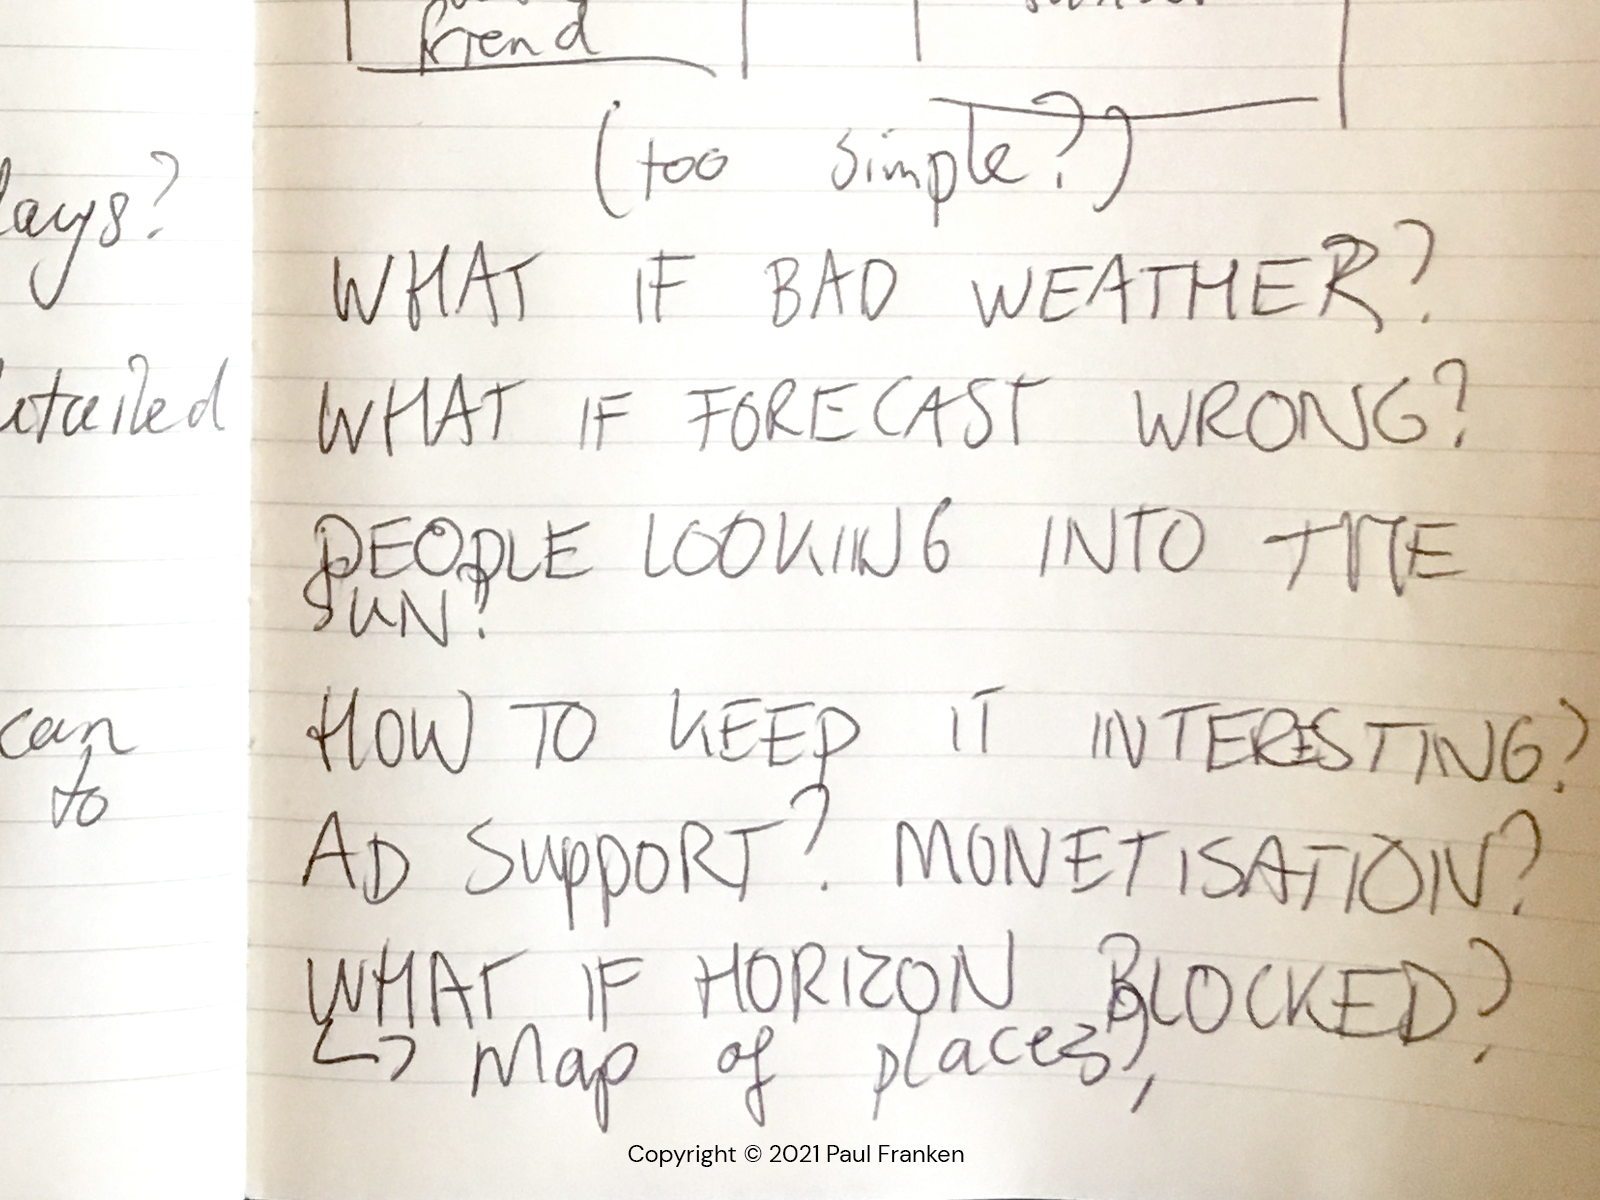 friend
(too simple?)
WHAT IF BAD WEATHER?
WHAT IF FORECAST WRONG?
PEOPLE LOOKING INTO THE
SUN?
HOW TO KEEP IT INTERESTING?
AD SUPPORT? MONETISATION?
WHAT IF HORIZON BLOCKED?
↳ Map of places,
can
to
Copyright © 2021 Paul Franken